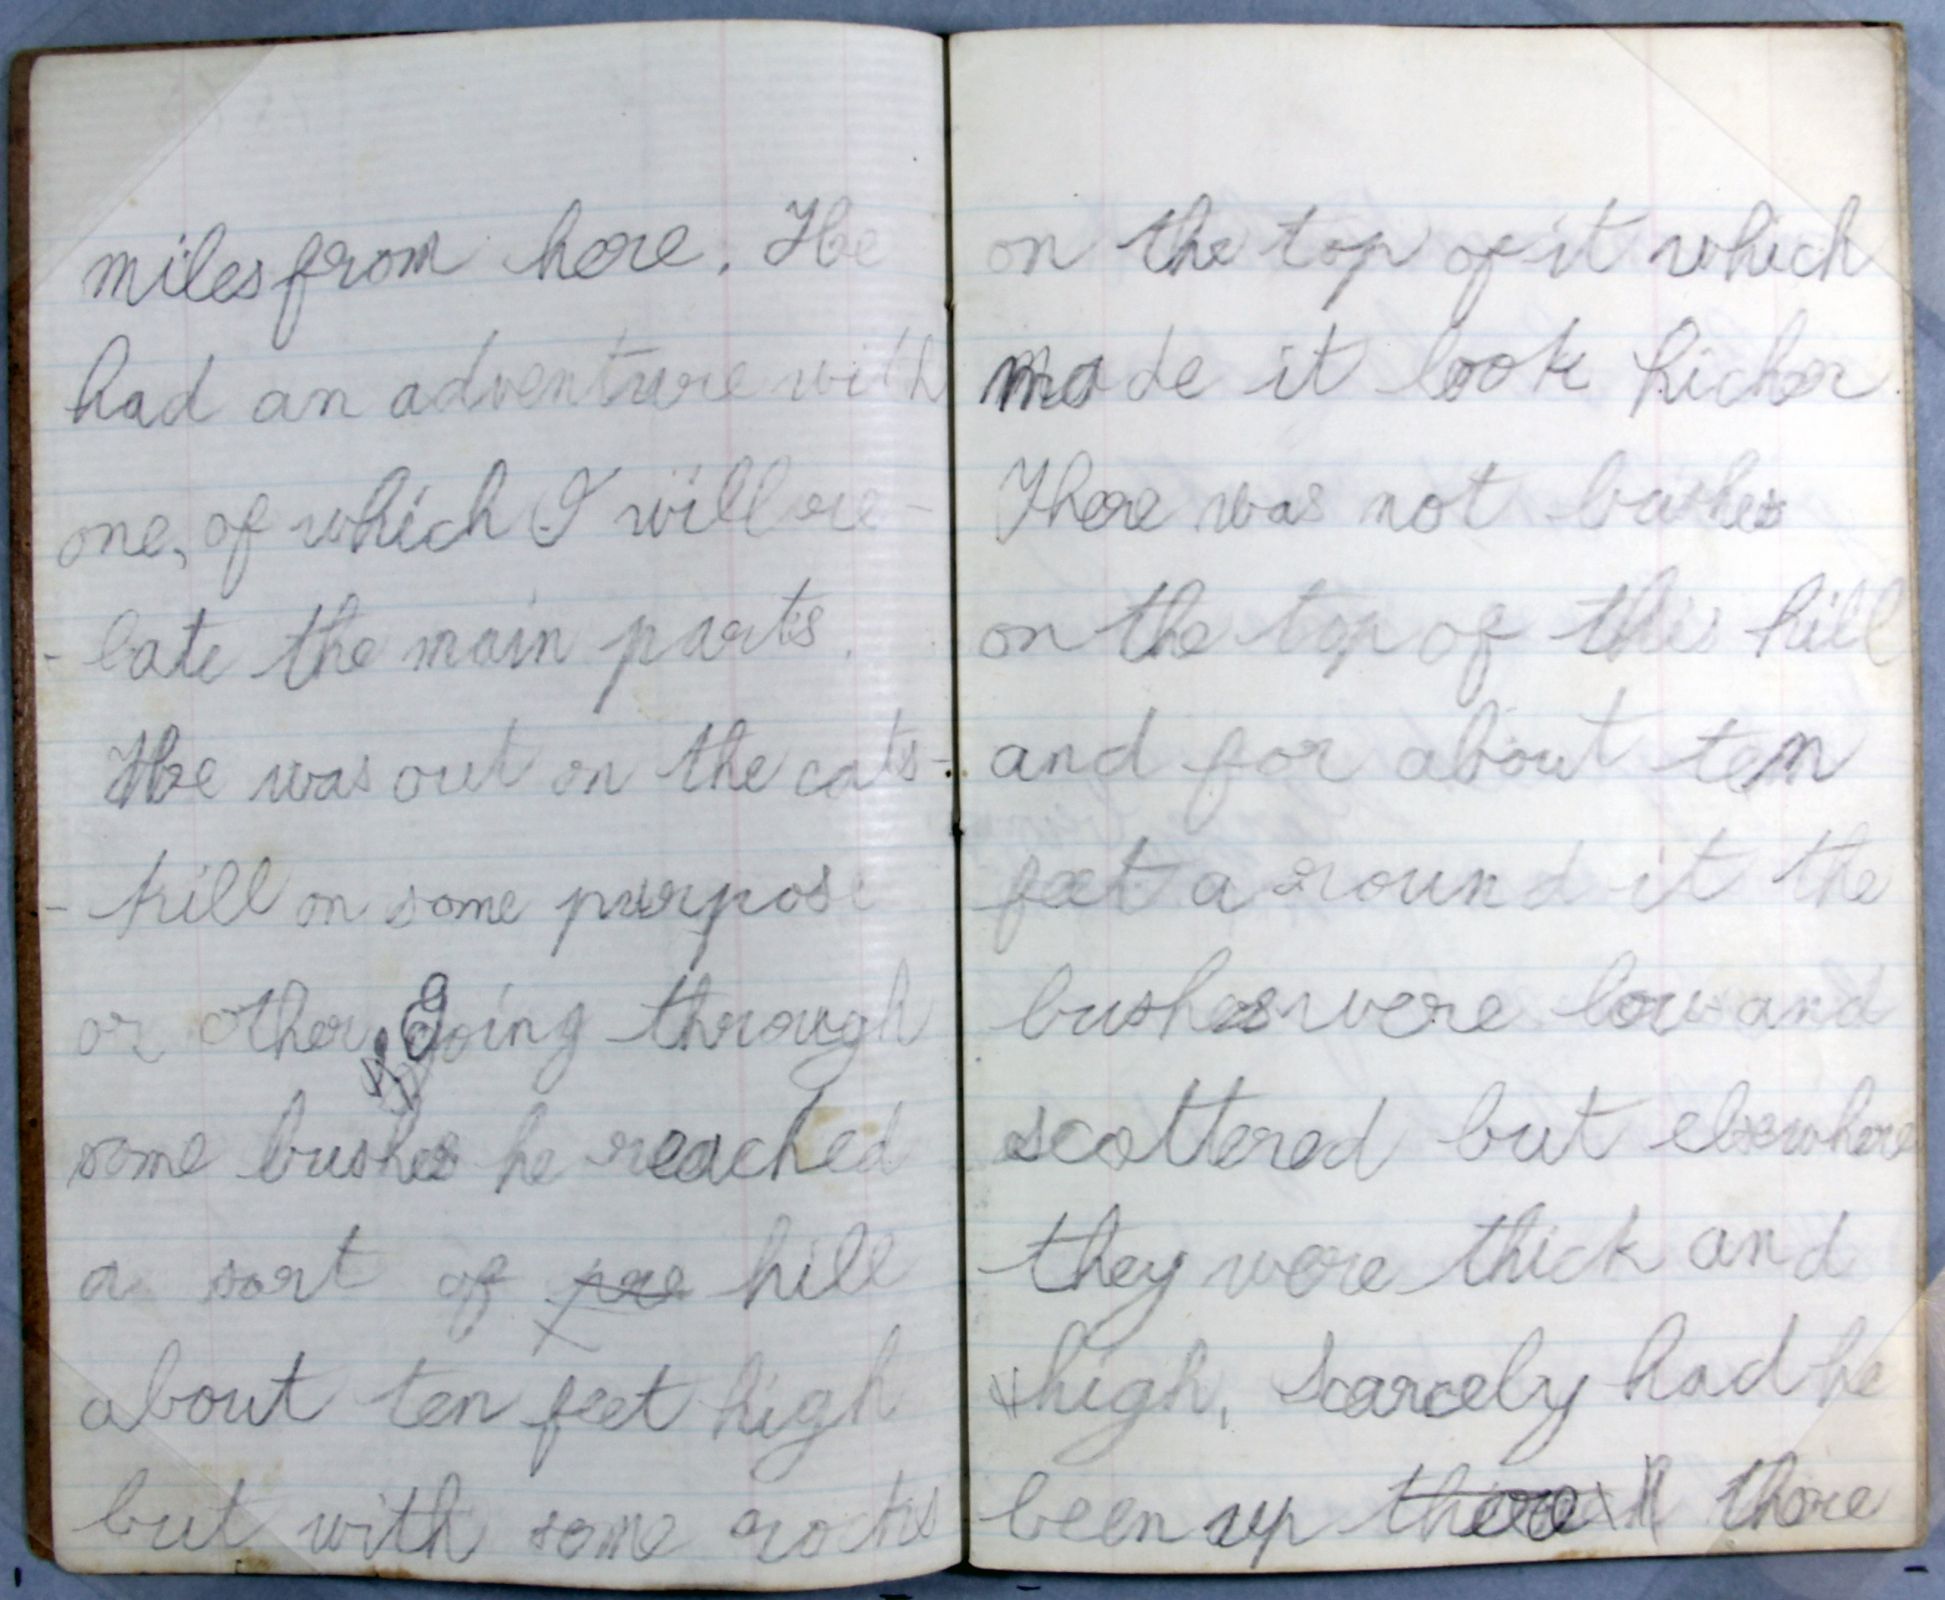 miles from here. He
had an adventure with
one, of which I will re-
-late the main parts.
He was out on the cats-
-kill on some purpose
or other. Going through
some bushes he reached
a sort of pre hill
about ten feet high
but with some rocks
on the top of it which
made it look hicher.
There was not bushes
on the top of this hill
and for about ten
feet a round it the
bushes were low and
scattered but elsewhere
they were thick and
high. Scarcely had he
been up there there